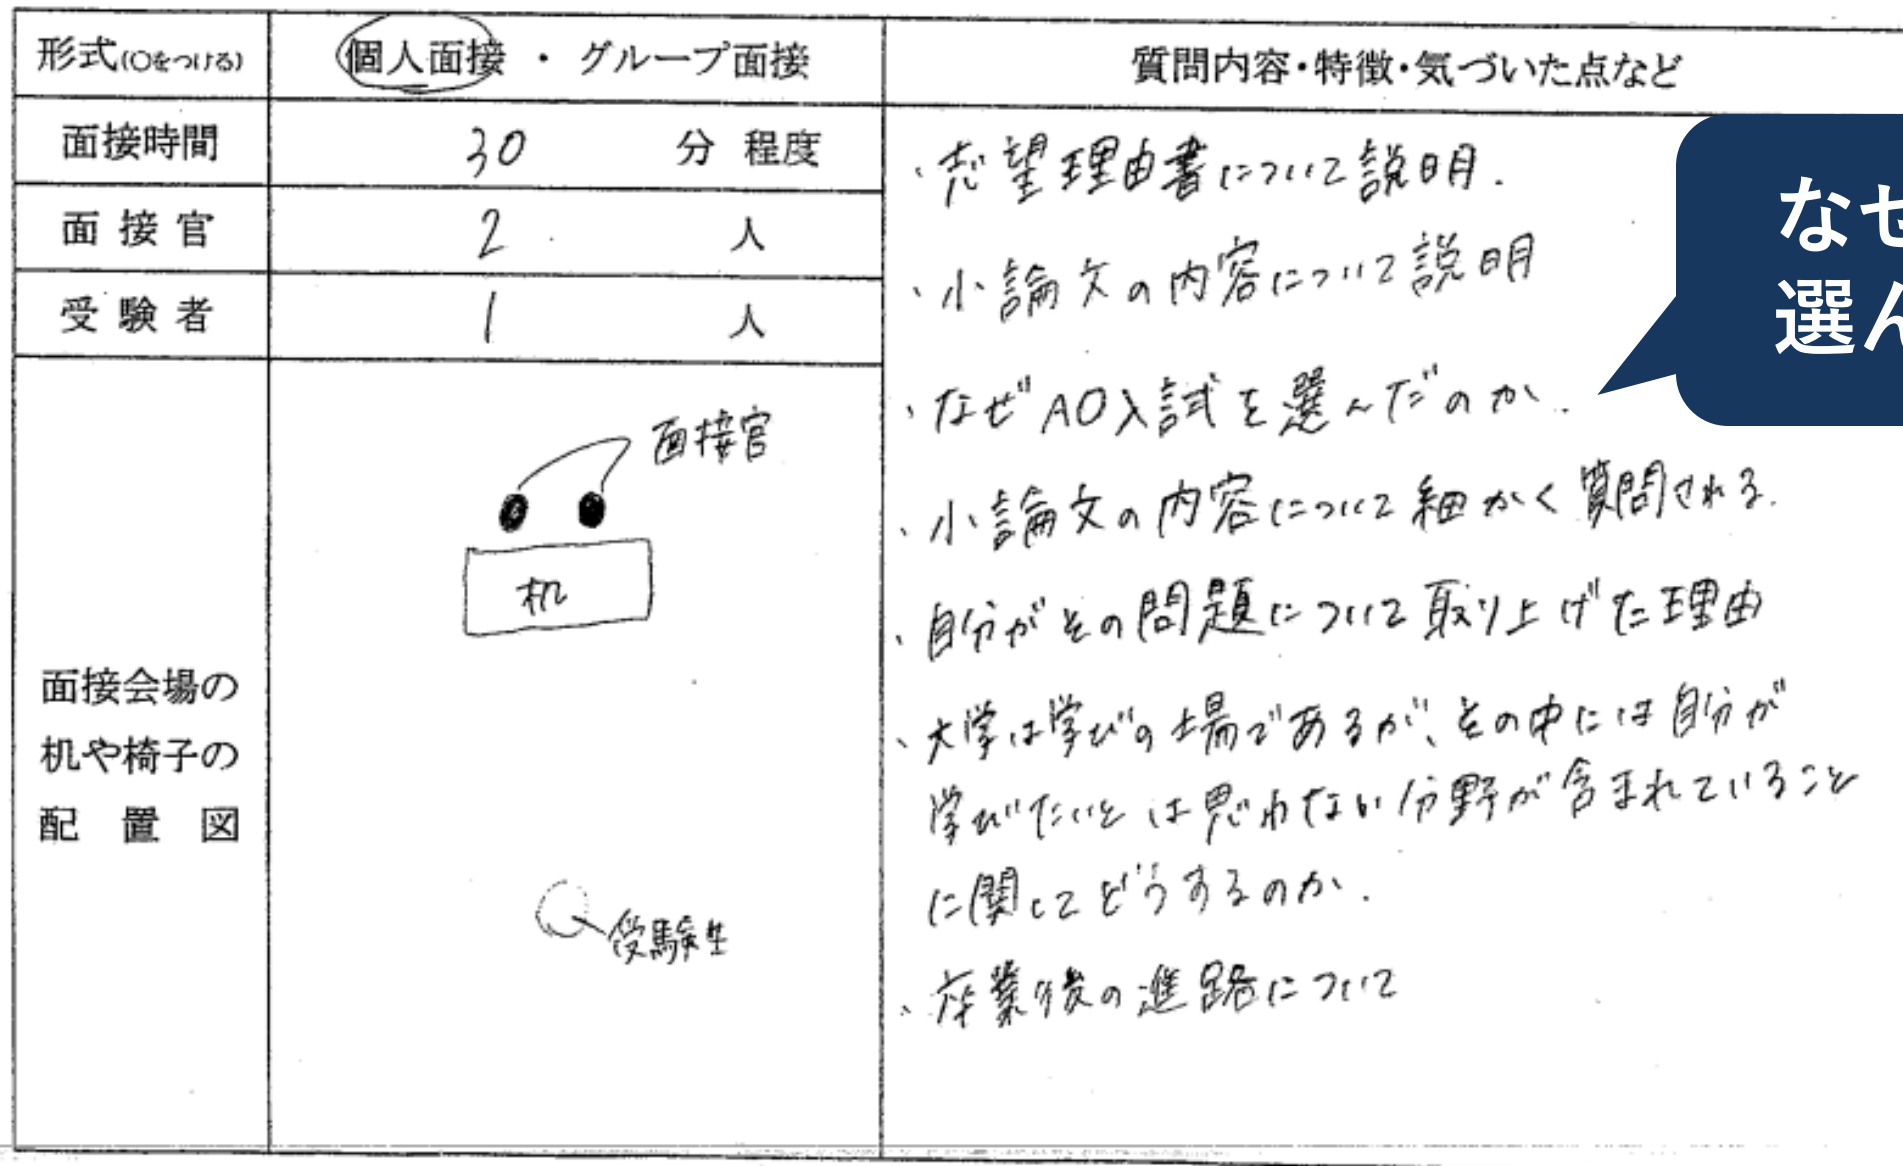 形式(○をつける)
個人面接・グループ面接
質問内容・特徴・気づいた点など
面接時間
30 分 程度
面接官
2 人
受験者
1 人
面接会場の
机や椅子の
配置図
面接官
机
受験生
・志望理由書について説明.
・小論文の内容について説明
・なぜAO入試を選んだのか.
・小論文の内容について細かく質問される.
・自分がその問題について取り上げた理由
・大学は学びの場であるが、その中には自分が
学びたいとは思わない分野が含まれていること
に関してどうするのか.
・卒業後の進路について
なぜ
選ん